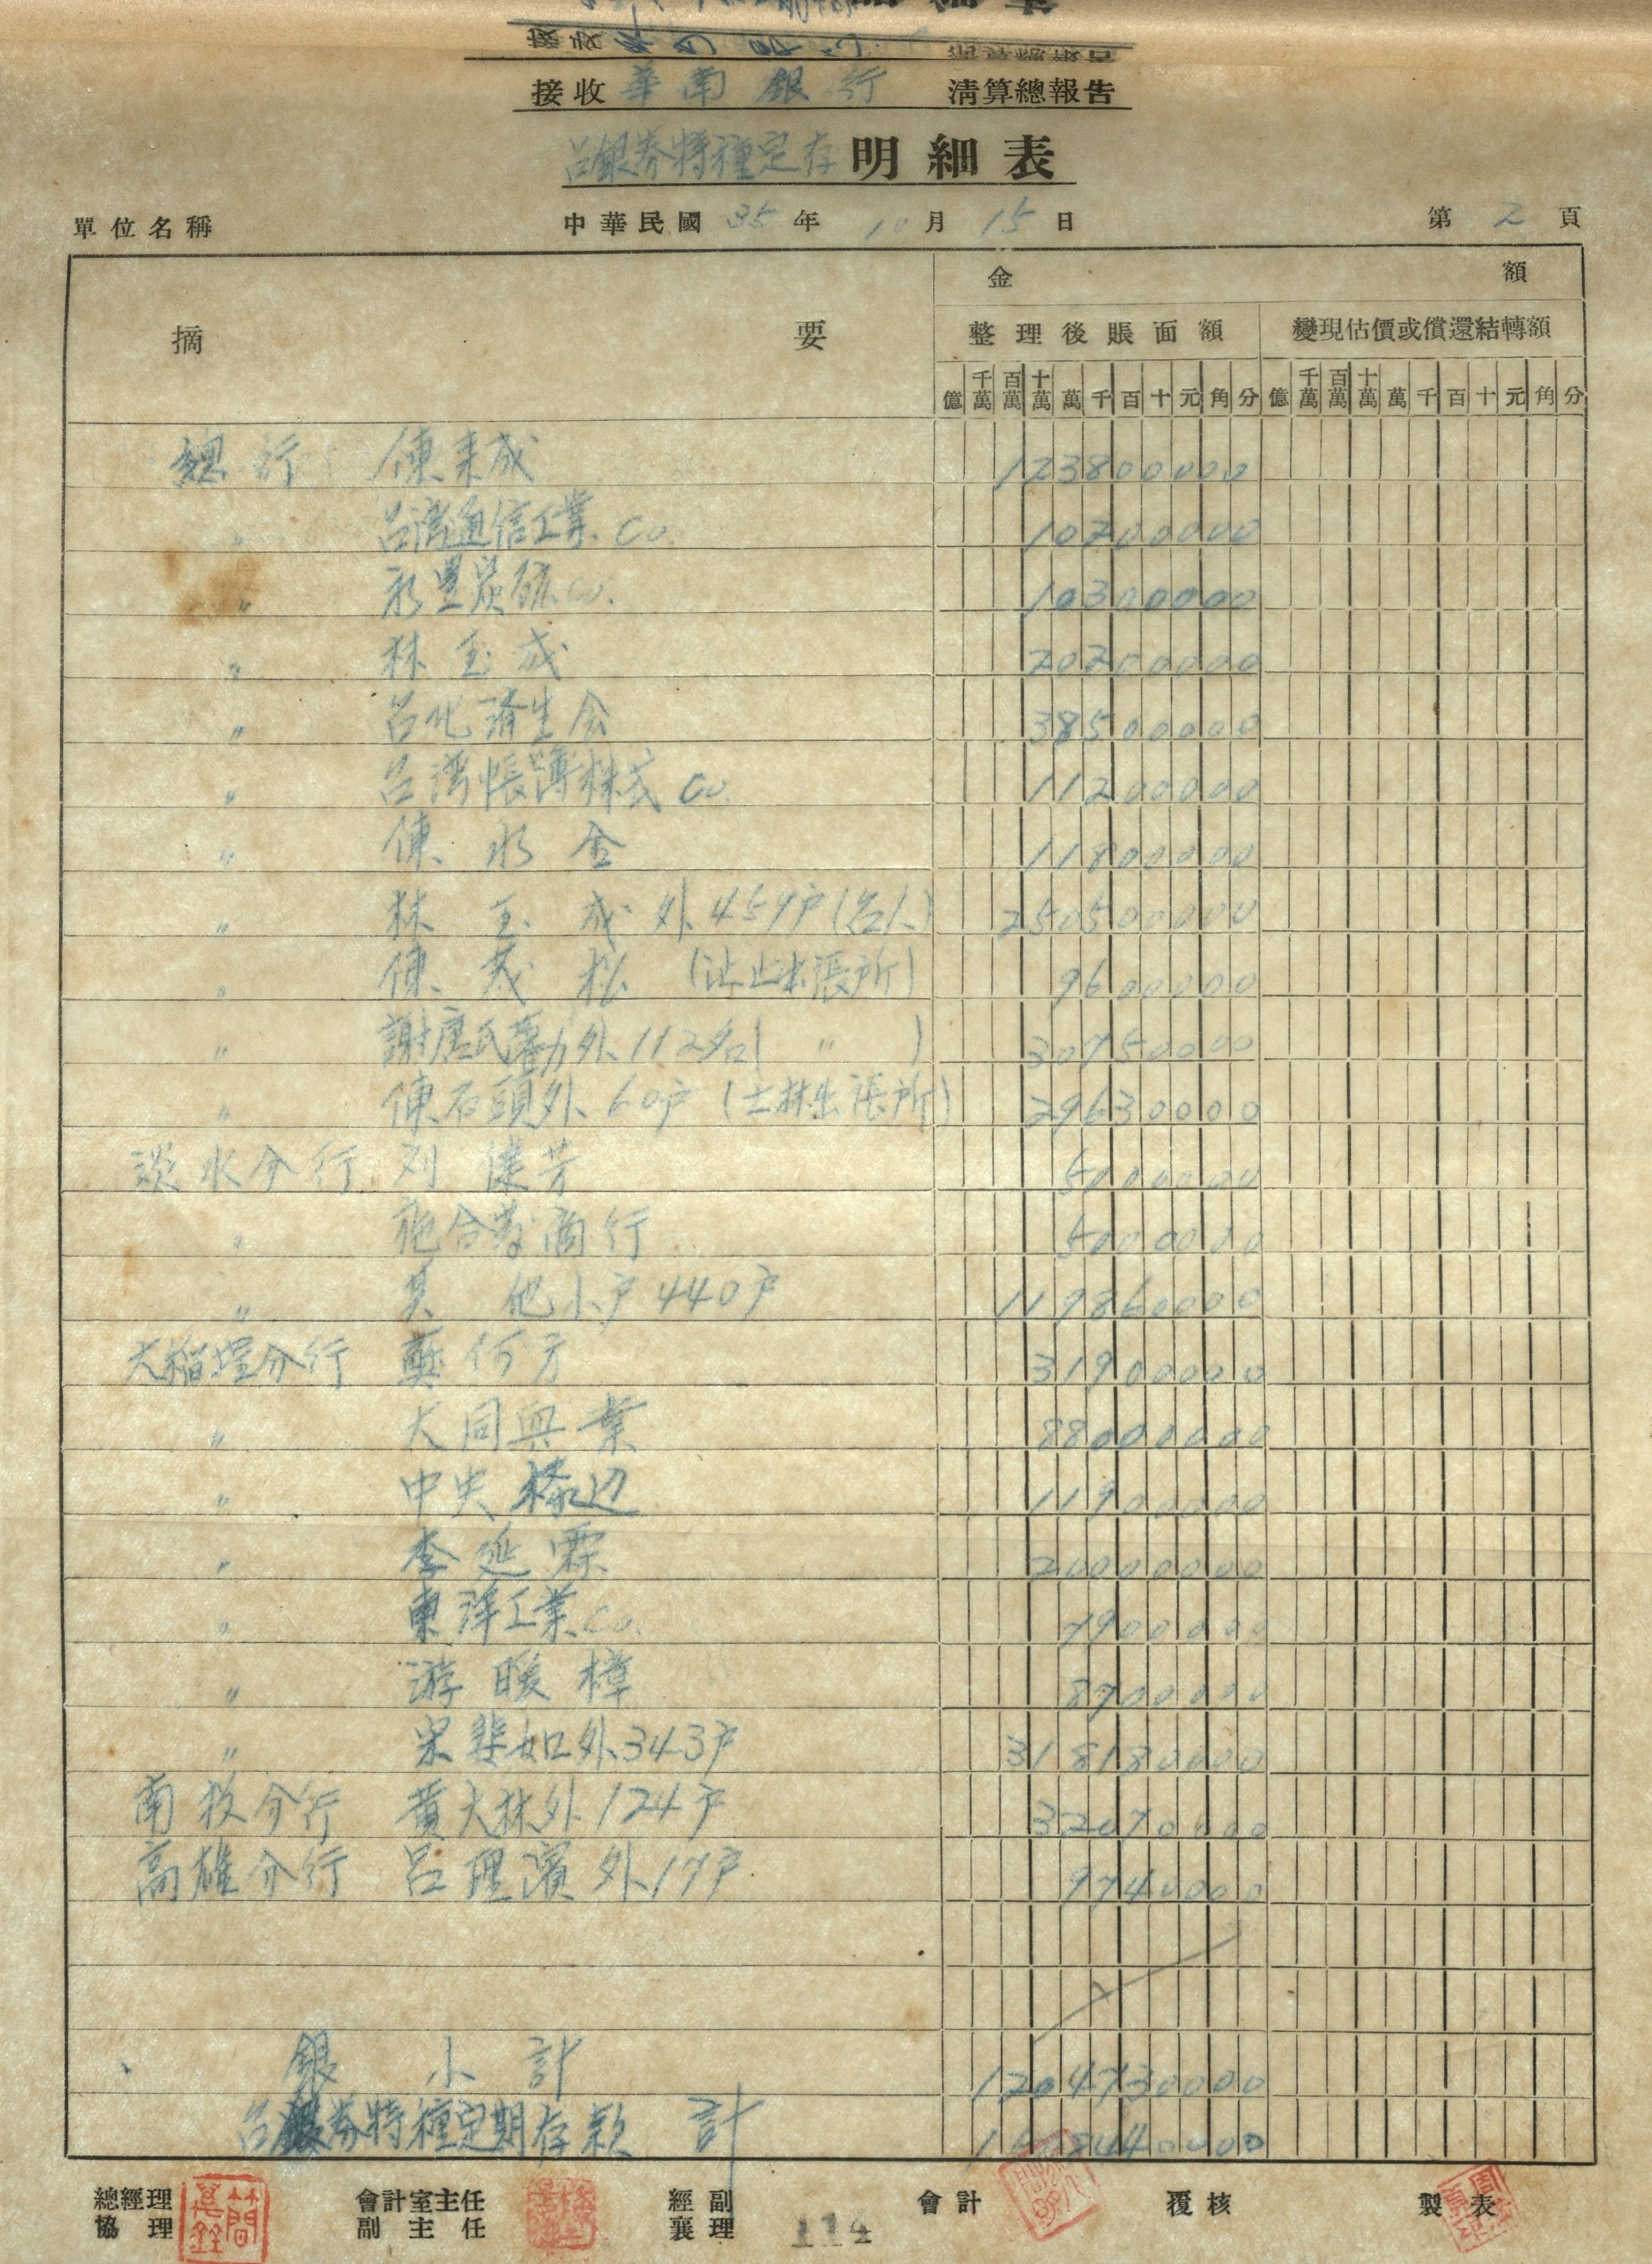 接收 華南銀行 清算總報告
台銀券特種定存 明細表
單位名稱 中華民國 35 年 10 月 15 日 第 2 頁
摘 要 金 額
整理後賬面額 變現估價或償還結轉額
億 千萬 百萬 十萬 萬 千 百 十 元 角 分 億 千萬 百萬 十萬 萬 千 百 十 元 角 分
總行 陳來成 123800000
〃 台湾通信工業Co. 10200000
〃 永豊炭砿Co. 10300000
〃 林玉成 20200000
〃 台北済生会 38500000
〃 台湾帳簿株式Co. 11200000
〃 陳永金 11800000
〃 林玉成外459户(名人) 250500000
〃 陳茂松 (汐止出張所) 9600000
〃 謝唐氏 外112名(〃) 30750000
〃 陳石頭外60户 (士林出張所) 29630000
淡水分行 刘 芳 5000000
〃 施合發商行 5000000
〃 其他小户440户 119860000
大稲埕分行 蘇何方 31900000
〃 大同興業 88000000
〃 中央 辺 11900000
〃 李延霖 20000000
〃 東洋工業Co. 7900000
〃 游暖樟 8700000
〃 宋斐如外343户 318180000
南投分行 黄大林外124户 32070000
高雄分行 呂理濱外17户 9740000
銀小計 1204730000
台銀券特種定期存款 計
總經理 會計室主任 經副 會計 覆核 製表
協理 副主任 襄理
114